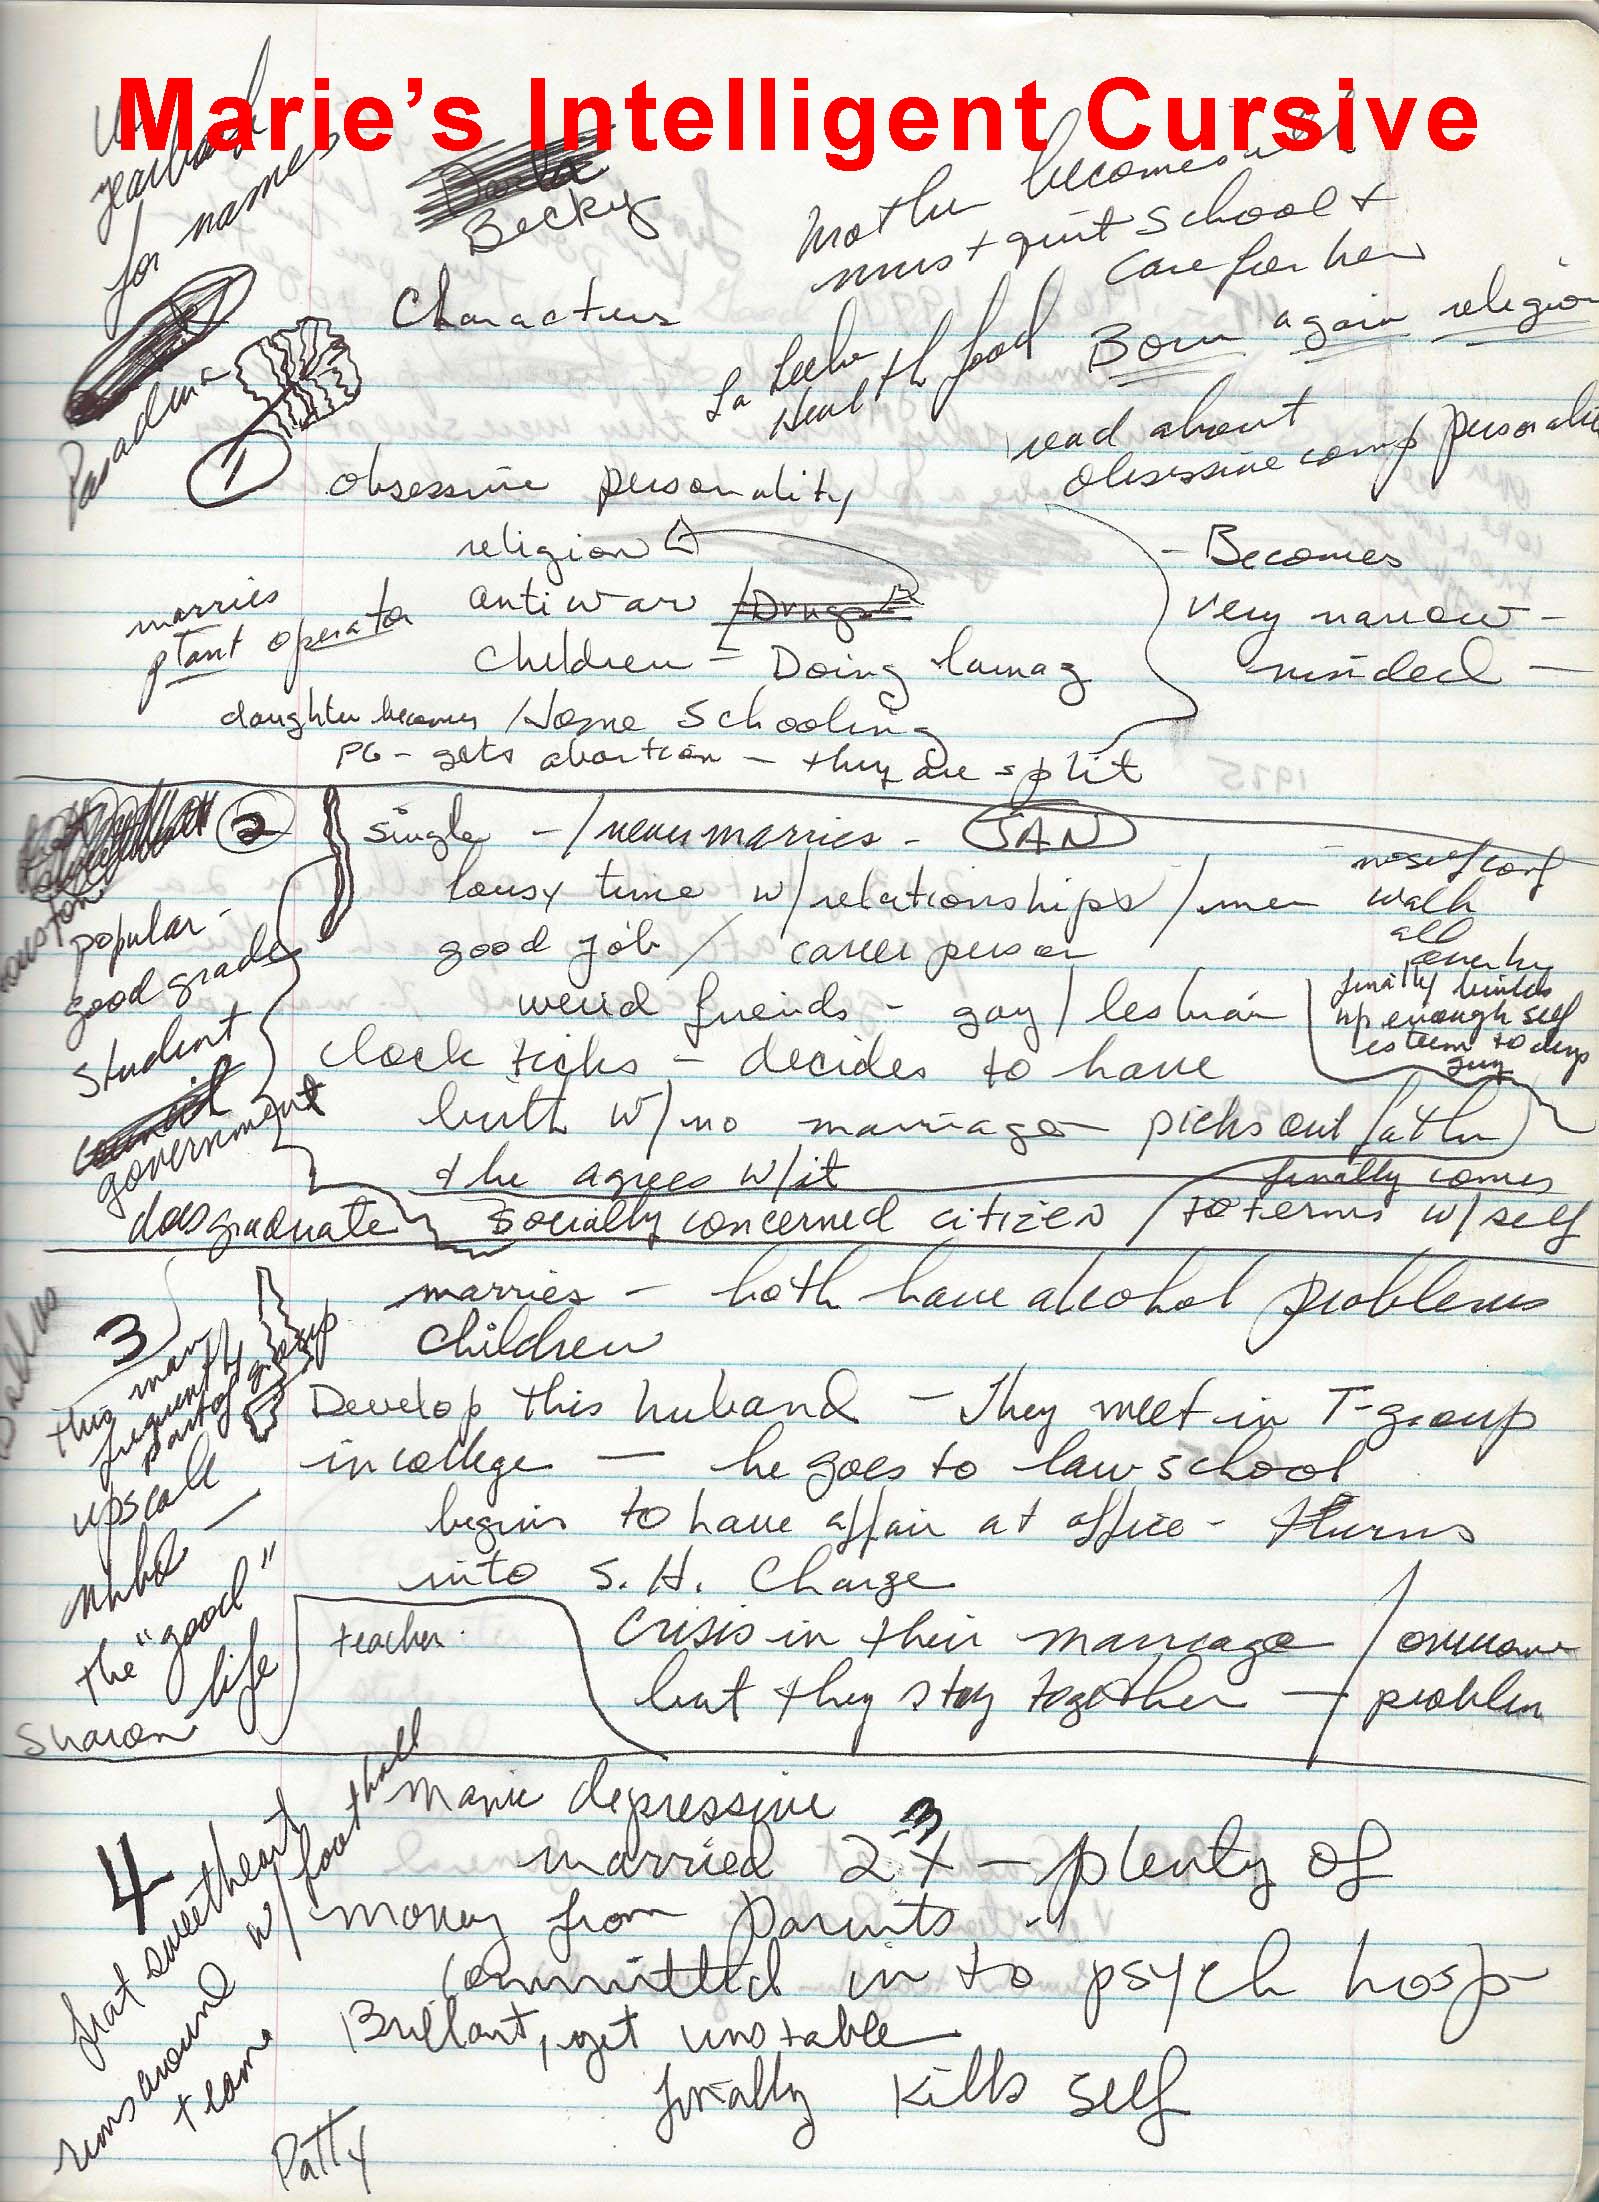 Marie's Intelligent Cursive
yearbook
for names
Becky
Mother becomes
must quit school +
care for her
Characters
La Leche
Health food
Born again religion
read about
obsessive comp personality
Pasadena
1
obsessive personality
religion
anti war / Drugs
marries
plant operator
children - Doing
Home Schooling
daughter becomes
PG - gets abortion - they are split
- Becomes
very narrow -
minded -
2
single - / never marries - JAN
lousy time w/ relationships / men
good job / career person
weird friends - gay / lesbian
clock ticks - decides to have
birth w/ no marriage picks out father
+ he agrees w/ it
socially concerned citizen / finally comes
to terms w/ self
no self conf
walk
all
over her
finally builds
up enough self
esteem to dump
guy
popular -
good grades
student
council
government
does graduate
Dallas
3
this man
frequently
part of group
upscale
nhbd -
the "good"
life
Sharon
marries - both have alcohol problems
children
Develop this huband - They meet in T-group
in college - he goes to law school
begins to have affair at office - turns
into S. H. Charge
teacher
crisis in their marriage / overcome
but they stay together - / problem
4
frat sweetheart
runs around w/ football
team
Patty
Manic depressive
married 2-3 X - plenty of
money from parents
committed in to psych hosp
Brillant, yet unstable
finally kills self